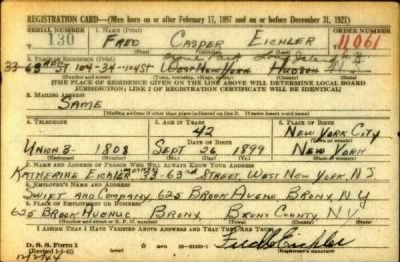 REGISTRATION CARD—(Men born on or after February 17, 1897 and on or before December 31, 1921)
SERIAL NUMBER 1. NAME (Print) ORDER NUMBER
130 FRED CASPER EICHLER 11061
(First) (Middle) (Last)
2. PLACE OF RESIDENCE (Print)
WEST NEW YORK HUDSON N.J.
(Number and street) (Town, township, village, or city) (County) (State)
[THE PLACE OF RESIDENCE GIVEN ON THE LINE ABOVE WILL DETERMINE LOCAL BOARD
JURISDICTION; LINE 2 OF REGISTRATION CERTIFICATE WILL BE IDENTICAL]
3. MAILING ADDRESS
SAME
4. TELEPHONE 5. AGE IN YEARS 6. PLACE OF BIRTH
42 NEW YORK CITY
DATE OF BIRTH
UNION 3- 1808 SEPT 26 1899 NEW YORK
7. NAME AND ADDRESS OF PERSON WHO WILL ALWAYS KNOW YOUR ADDRESS
KATHERINE EICHLER 33-63RD STREET, WEST NEW YORK, N.J.
8. EMPLOYER'S NAME AND ADDRESS
SWIFT AND COMPANY, 625 BROOK AVENUE BRONX, N.Y
9. PLACE OF EMPLOYMENT OR BUSINESS
625 BROOK AVENUE BRONX, BRONX COUNTY N.Y
(Number and street or R. F. D. number) (Town) (County) (State)
I AFFIRM THAT I HAVE VERIFIED ABOVE ANSWERS AND THAT THEY ARE TRUE.
D. S. S. Form 1 Fred C Eichler
(Registrant's signature)